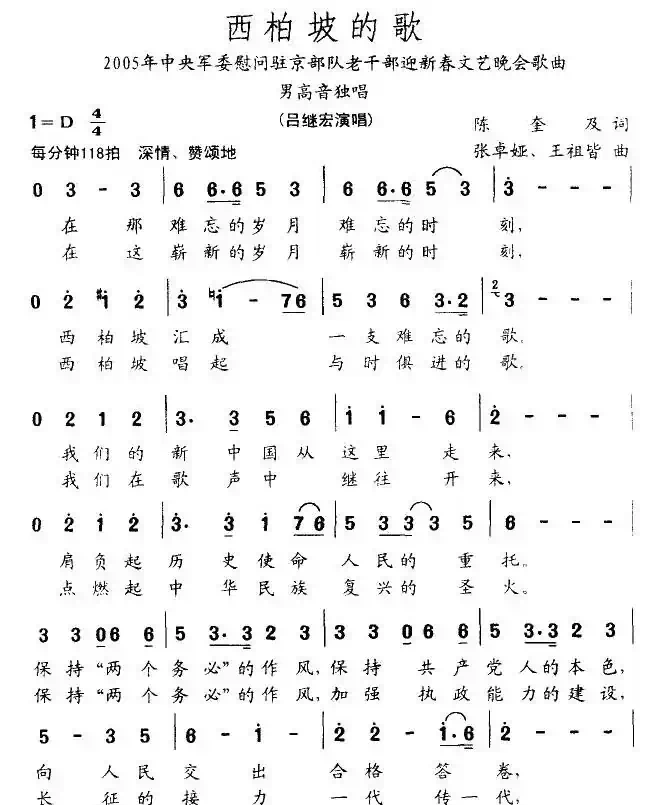 西柏坡的歌
2005年中央军委慰问驻京部队老干部迎新春文艺晚会歌曲
男高音独唱
1=D 4/4 (吕继宏演唱) 陈奎及词
每分钟118拍 深情、赞颂地 张卓娅、王祖皆曲
0 3 - 3 | 6 6·6 5 3 | 6 6·6 5 3 | 3 - - - |
在那难忘的岁月难忘的时刻,
在这崭新的岁月崭新的时刻,
0 2 #1 2 | 3 ♮1 - 76 | 5 3 6 3·2 | 2 3 - - - |
西柏坡汇成一支难忘的歌。
西柏坡唱起与时俱进的歌。
0 2 1 2 | 3· 3 5 6 | 1 1 - 6 | 2 - - - |
我们的新中国从这里走来,
我们在歌声中继往开来,
0 2 1 2 | 3· 3 1 76 | 5 3 3 3 5 | 6 - - - |
肩负起历史使命人民的重托。
点燃起中华民族复兴的圣火。
3 3 06 6 | 5 3·3 2 3 | 3 3 06 6 | 5 3·3 2 3 |
保持“两个务必”的作风,保持共产党人的本色,
保持“两个务必”的作风,加强执政能力的建设,
5 - 3 5 | 6 - 1 - | 2 2 - 1·6 | 2 - - - |
向人民交出合格答卷,
长征的接力一代传一代,